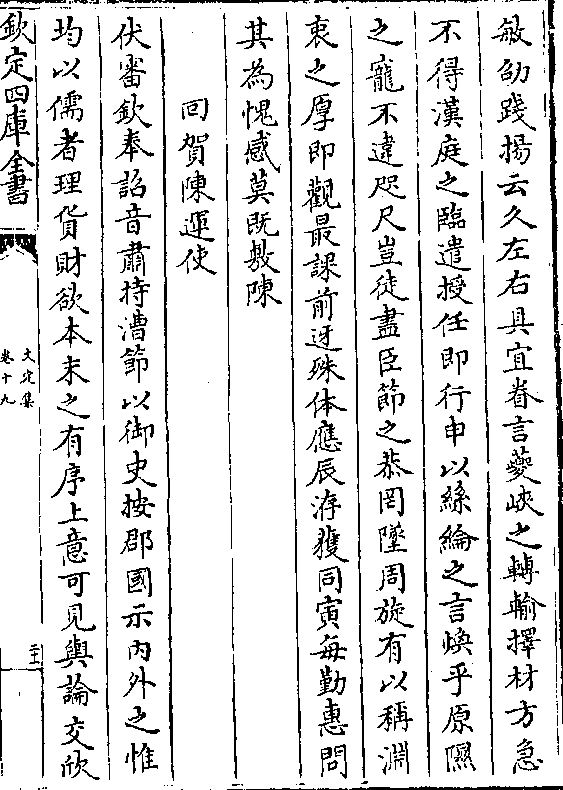 敏劭踐揚云久左右具宜眷言夔峽之轉輸擇材方急
不得漢庭之臨遣授任即行申以絲綸之言煥乎原隰
之寵不違咫尺豈徒盡臣節之恭罔墜周旋有以稱淵
衷之厚即觀最課前迓殊休應辰洊獲同寅每勤惠問
其為愧感莫既敷陳
回賀陳運使
伏審欽奉詔音肅持漕節以御史按郡國示內外之惟
均以儒者理貨財欲本末之有序上意可見輿論交欣
欽定四庫全書
文定集
卷十九